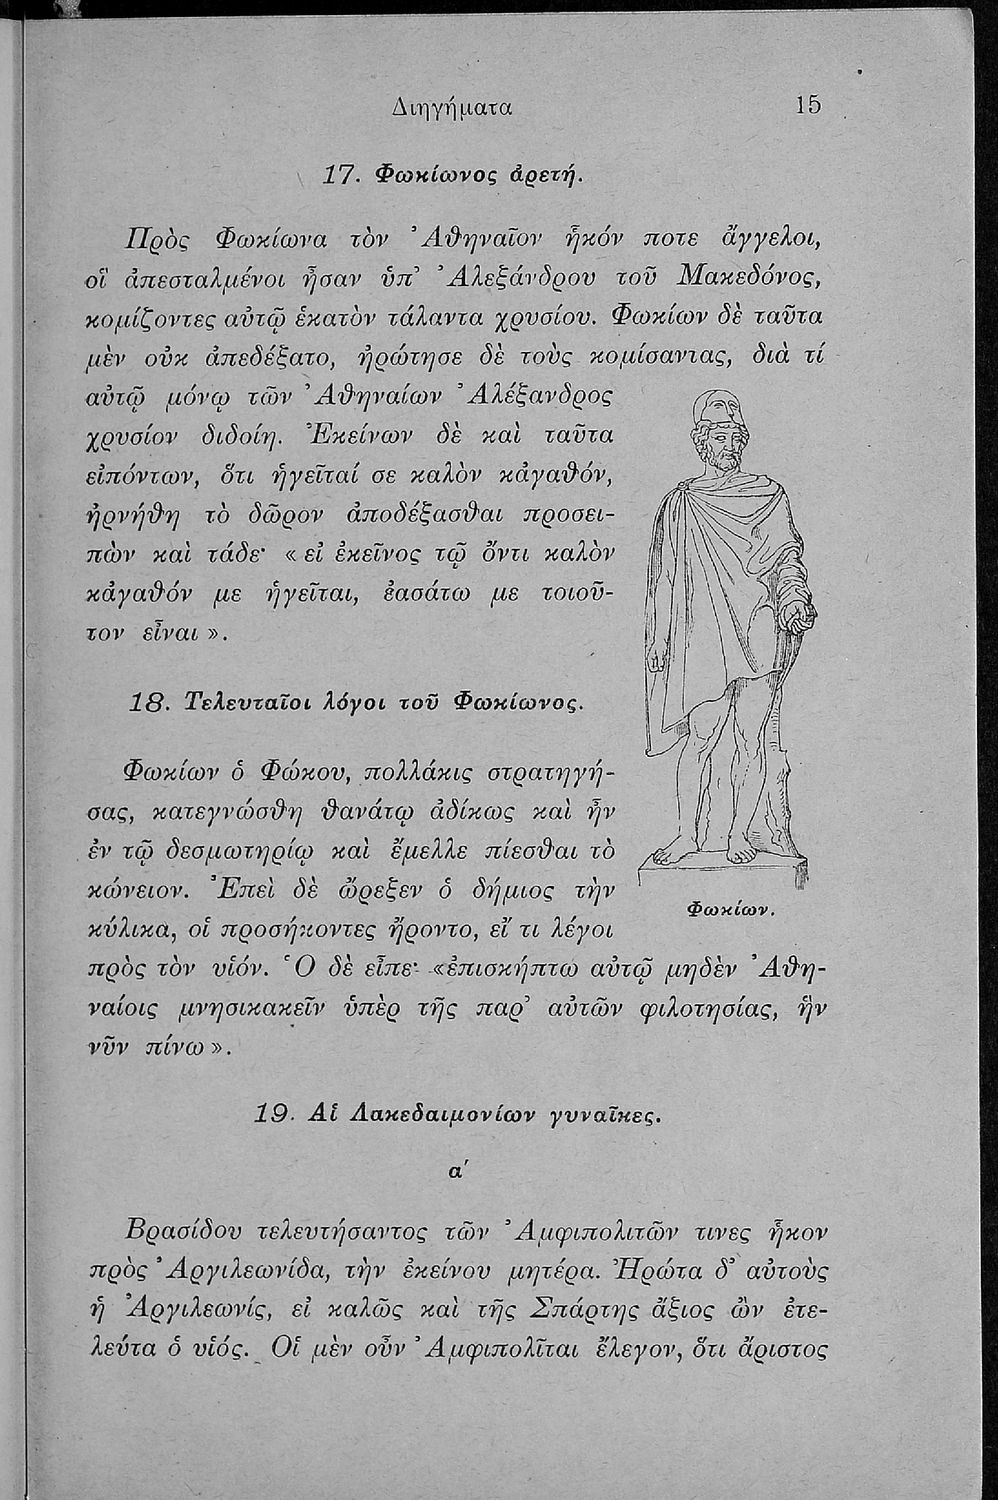 Διηγήματα 15
17. Φωκίωνος ἀρετή.
Πρὸς Φωκίωνα τὸν Ἀθηναῖον ἧκόν ποτε ἄγγελοι,
οἳ ἀπεσταλμένοι ἦσαν ὑπ’ Ἀλεξάνδρου τοῦ Μακεδόνος,
κομίζοντες αὐτῷ ἑκατὸν τάλαντα χρυσίου. Φωκίων δὲ ταῦτα
μὲν οὐκ ἀπεδέξατο, ἠρώτησε δὲ τοὺς κομίσαντας, διὰ τί
αὐτῷ μόνῳ τῶν Ἀθηναίων Ἀλέξανδρος
χρυσίον διδοίη. Ἐκείνων δὲ καὶ ταῦτα
εἰπόντων, ὅτι ἡγεῖταί σε καλὸν κἀγαθόν,
ἠρνήθη τὸ δῶρον ἀποδέξασθαι προσει-
πὼν καὶ τάδε· « εἰ ἐκεῖνος τῷ ὄντι καλὸν
κἀγαθόν με ἡγεῖται, ἐασάτω με τοιοῦ-
τον εἶναι ».
18. Τελευταῖοι λόγοι τοῦ Φωκίωνος.
Φωκίων ὁ Φώκου, πολλάκις στρατηγή-
σας, κατεγνώσθη θανάτῳ ἀδίκως καὶ ἦν
ἐν τῷ δεσμωτηρίῳ καὶ ἔμελλε πίεσθαι τὸ
κώνειον. Ἐπεὶ δὲ ὤρεξεν ὁ δήμιος τὴν
κύλικα, οἱ προσήκοντες ἤροντο, εἴ τι λέγοι
Φωκίων.
πρὸς τὸν υἱόν. Ὁ δὲ εἶπε· «ἐπισκήπτω αὐτῷ μηδὲν Ἀθη-
ναίοις μνησικακεῖν ὑπὲρ τῆς παρ’ αὐτῶν φιλοτησίας, ἣν
νῦν πίνω ».
19. Αἱ Λακεδαιμονίων γυναῖκες.
α΄
Βρασίδου τελευτήσαντος τῶν Ἀμφιπολιτῶν τινες ἧκον
πρὸς Ἀργιλεωνίδα, τὴν ἐκείνου μητέρα. Ἠρώτα δ’ αὐτοὺς
ἡ Ἀργιλεωνίς, εἰ καλῶς καὶ τῆς Σπάρτης ἄξιος ὢν ἐτε-
λεύτα ὁ υἱός. Οἱ μὲν οὖν Ἀμφιπολῖται ἔλεγον, ὅτι ἄριστος